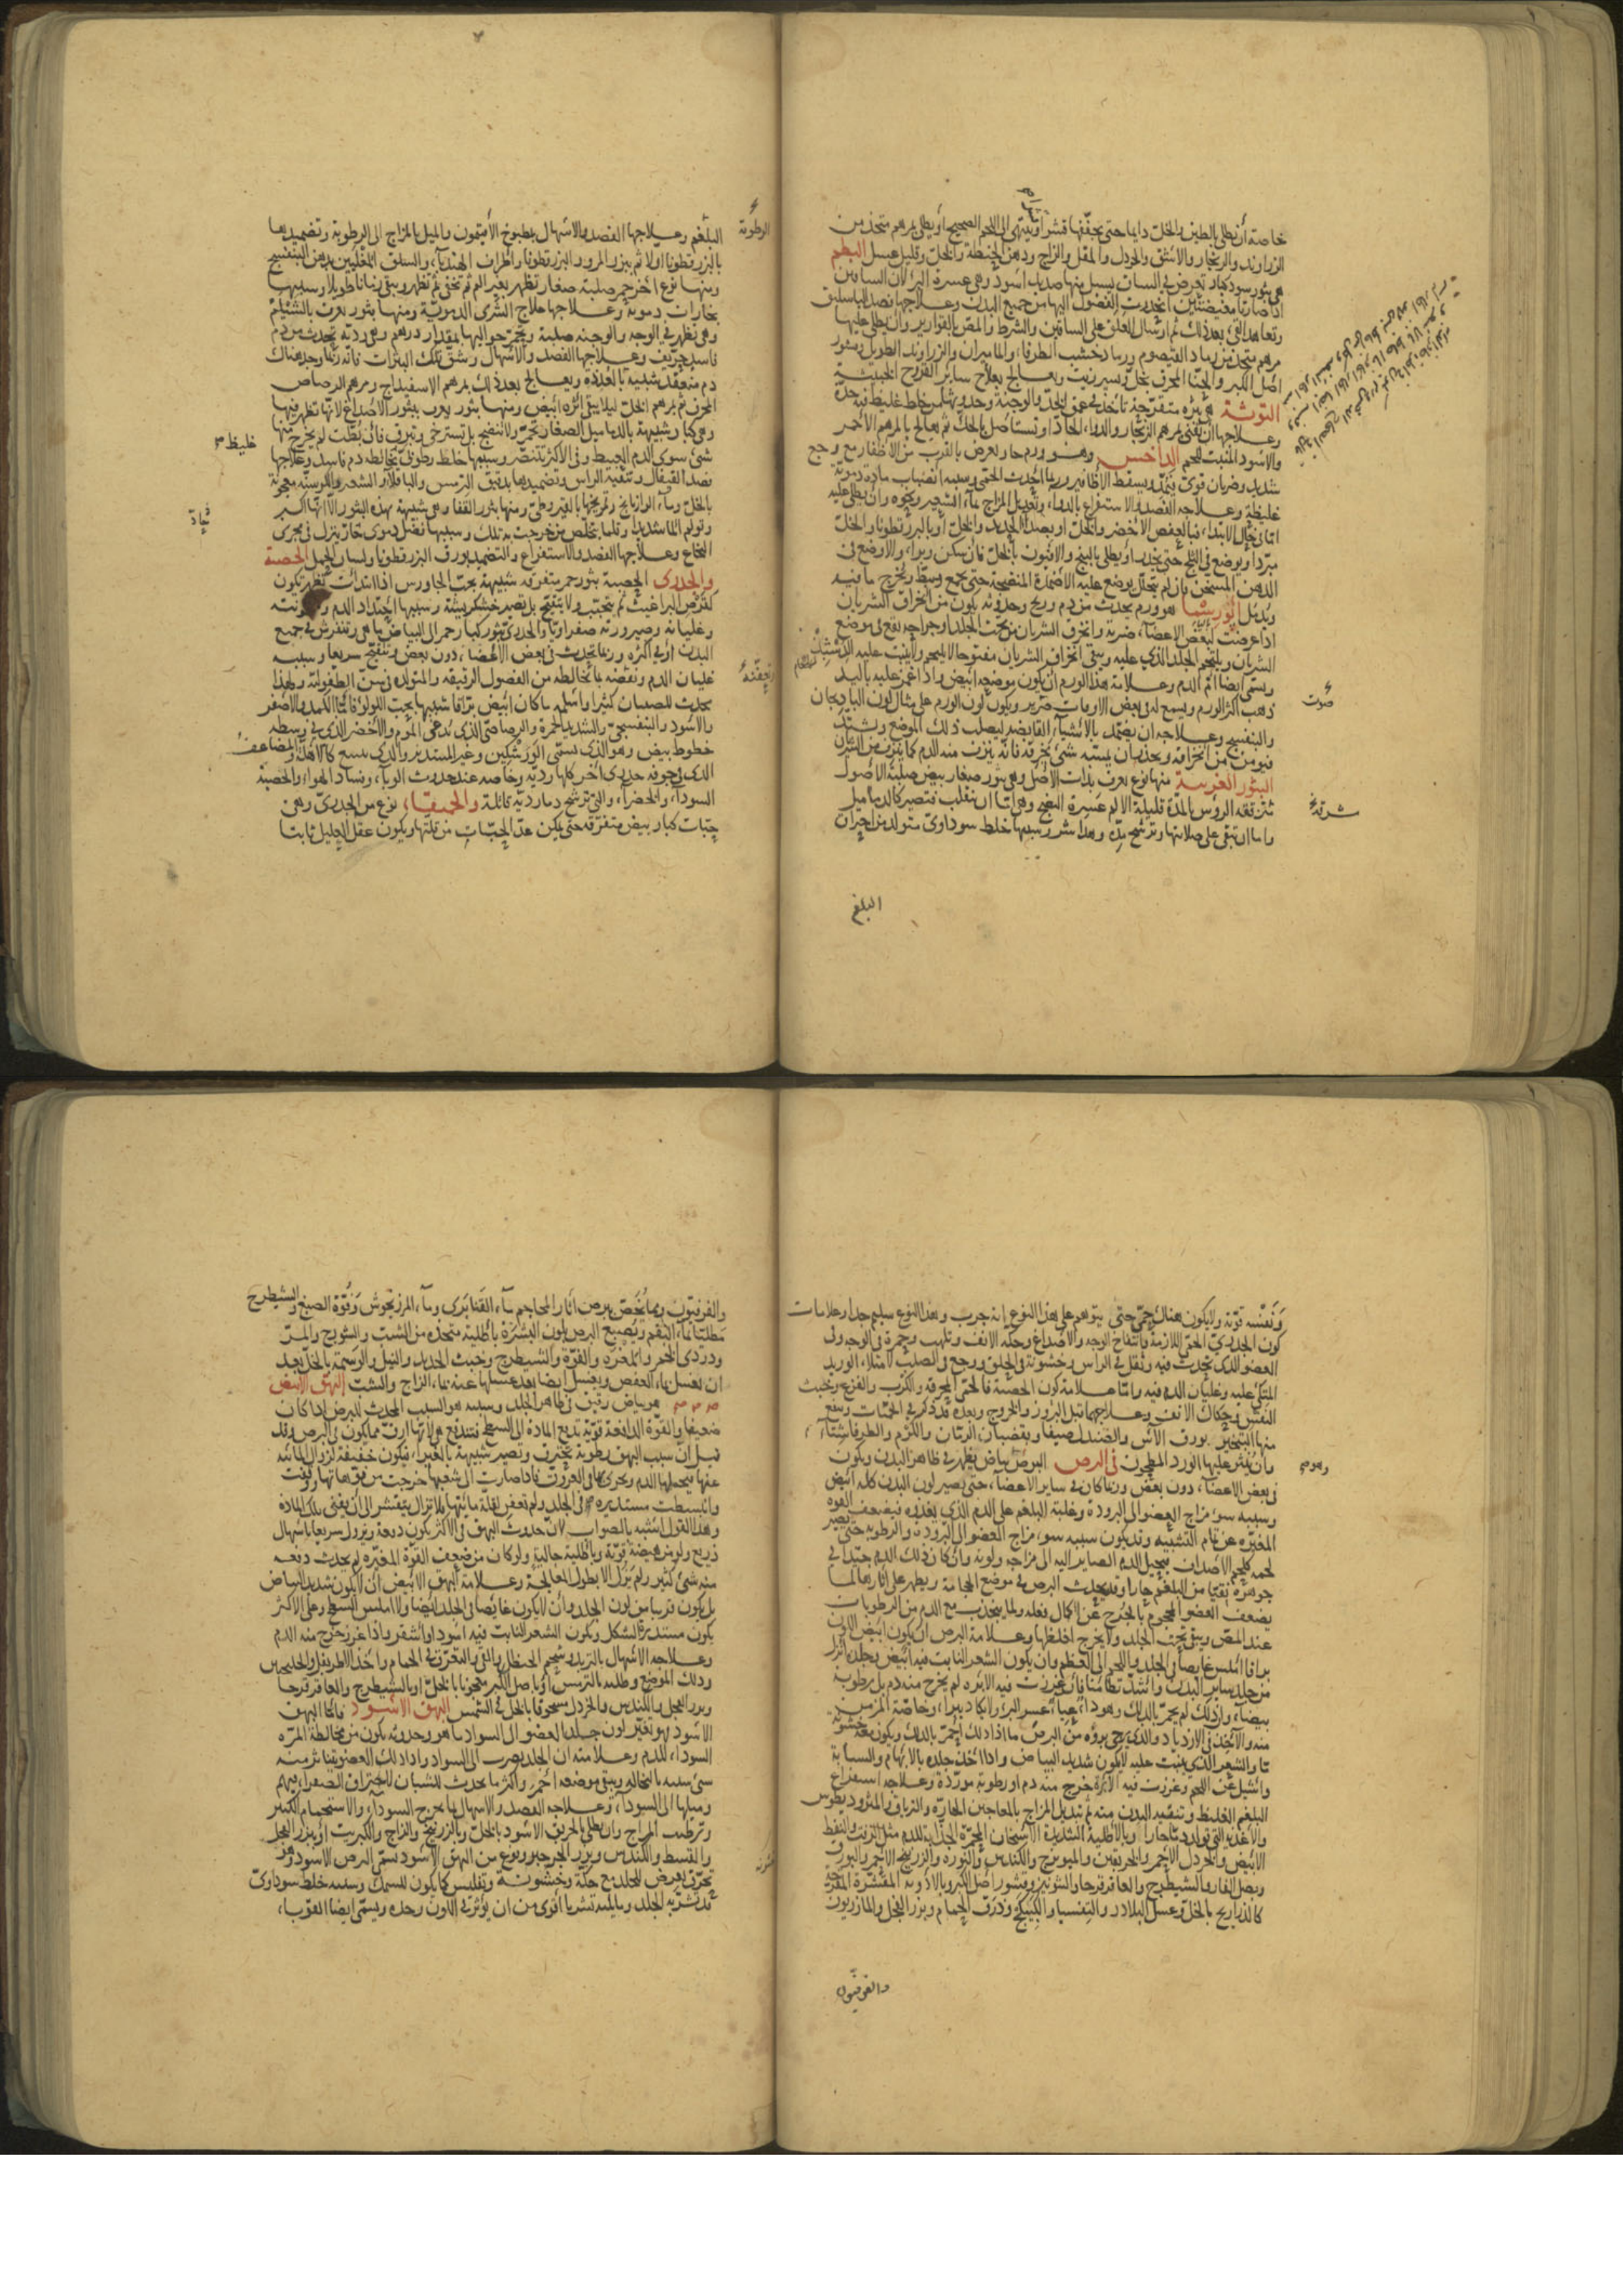 خاصة أن يطلى بالطين والخل دايما حتى يجففها قشرا وينتهى الى اللحم الصحيح أو يطلى بمرهم متخذ من
الزراوند والزنجار والاشق والخردل والمقل والزاج ودهن الحنطة والخل وقليل عسل البطم
هى بثور سود كبار تعرض فى الساق يسيل منها صديد اسود وهى عسرة البرء لأن الساقين
اذا صارتا مغيضتين انحدرت الفضول اليها من جميع البدن وعلاجها فصد الباسليق
وتعاهد القىء بعد ذلك ثم ارسال العلق على الساقين والشرط والمص بالقوارير وان يطلى عليها
مرهم متخذ من رماد القيصوم ورماد خشب الطرفاء والماميران والزراوند الطويل وقشور
اصل الكبر والحنا المحرق بخل ويسير زيت ويعالج بعلاج ساير القروح الخبيثة
التوثة هى بثرة متقرحة تأخذ فى عمق الخد والوجنة وحدوثها من خلط غليظ فيه حدة
وعلاجها أن تفنى بمرهم الزنجار والدواء الحاد او تستاصل بالحك ثم يعالج بالمرهم الأحمر
والاسود المنبت للحم الداخس وهو ورم حار يعرض بالقرب من الاظفار مع وجع
شديد وضربان قوى وتمدد ويسقط الأظافير وربما أحدث الحمى وسببه انصباب مادة دموية
غليظة وعلاجه الفصد والاستفراغ بالدواء وتعديل المزاج بماء الشعير ونحوه وأن يطلى عليه
اما فى حال الابتداء فبالعفص الاخضر والخل او بصدأ الحديد والخل أو بالبزرقطونا والخل
مبردا ويوضع فى الثلج حتى يخدر او يطلى بالبنج والافيون بالخل فان سكن وبرا والا وضع فى
الدهن المسخن فان لم يتحلل يوضع عليه الاضمدة المنضجة حتى يجمع ويبط ويخرج ما فيه
ويدمل انوريسما هو ورم يحدث من دم وريح وحدوثه يكون من انخراق الشريان
اذا عرضت لبعض الاعضاء ضربة وانخرق الشريان من تحت الجلد او جراحة تقع فى موضع
الشريان ويلتحم الجلد الذى عليه ويبقى انخراق الشريان مفتوحا لا يلتحم ولا ينبت عليه الدشبذ
ويسمى ايضا ام الدم وعلامة هذا الورم ان يكون موضعه ابيض واذا غمز عليه باليد
ذهب اكثر الورم ويسمع له فى بعض الاوقات صرير ويكون لون الورم على مثال لون الباذنجان
والبنفسج وعلاجه ان يضمد بالأشياء القابضة ليصلب ذلك الموضع ويشتد
فيومن من انخراقه ويحذر ان يمسه شئ يخرقه فانه ينزف منه الدم كما ينزف من الشريان
البثور الغريبة منها نوع يعرف بذات الاصل وهى بثور صغار بيض صلبة الاصول
متفقعة الروس بالمدة قليلة الالم عسرة النضج وهى اما ان تنقلب فتصير كالدماميل
واما ان تبقى على صلابتها وترشح مدة وهذا شر وسببها خلط سوداوى متولد من احتراق
البلغم
صوت
البلغم وعلاجها الفصد والاسهال بمطبوخ الأفتيمون والميل بالمزاج الى الرطوبة وتضميدها
بالبزرقطونا اولا ثم ببزر المرو والبزرقطونا واطراف الهندباء والسلق المغليين بدهن البنفسج
ومنها نوع أخر حمر صلبة صغار تظهر بغير الم ثم تخفى ثم تظهر وتبقى زمانا طويلا وسببها
بخارات دموية وعلاجها علاج الشرى الدموية ومنها بثور يعرف بالشيلم
وهى تظهر فى الوجه والوجنة صلبة وتحمر حواليها بمقدار درهم وهى ردية تحدث من دم
فاسد حريف وعلاجها الفصد والاسهال وشق تلك البثرات فانه ربما وجد هناك
دم منعقد شبيه بالغدة ويعالج بعد ذلك بمرهم الاسفيداج ومرهم الرصاص
المحرق ثم بمرهم الخل ليلا يبقى اثره ابيض ومنها بثور يعرف ببثور الأصداغ لانها تظهر فيها
وهى كبار شبيهة بالدماميل الصغار تحمر ولا تنضج بل تسترخى وتبرق فان بطت لم يخرج منها
شئ سوى الدم العبيط وفى الأكثر تتنصر وسببها خلط رطوبى يخالطه دم فاسد وعلاجها
فصد القيفال وتنقية الراس وتضميدها بدقيق الترمس والباقلا والشعير والكرسنة معجونة
بالخل وماء الرازيانج وتمريخها بالقيروطى ومنها بثور القفا وهى شبيهة بهذه البثور الا انها اكبر
وتولم الما شديدا وقلما يتخلص من خرجت به تلك وسببها فضل دموى حار ينزل فى مجرى
النخاع وعلاجها الفصد والاستفراغ والتضميد بورق البزرقطونا ولسان الحمل الحصبة
والجدرى الحصبة بثور حمر متفرقة شبيهة بحب الجاورس اذا ابتدأت تظهر تكون
كقرص البراغيث ثم تتحبب ولا يتقيح بل يصير خشكريشة وسببها احتداد الدم وعفونته
وغليانه وصيرورته صفراويا والجدرى بثور كبار حمر الى البياض ما هى وتنفرش فى جميع
البدن أو فى اكثره وربما يحدث فى بعض الأعضاء دون بعض ويتقيح سريعا وسببه
غليان الدم ونفضه ما يخالطه من الفضول الرقيقة والمتولدة فى سن الطفولة ولهذا
يحدث للصبيان كثيرا واسلمه ما كان ابيض براقا شبيها بحب اللولو فاما الكمد والأصفر
والأسود والبنفسجى والشديد الحمرة والرصاصى الذى يدعى الموم والأخضر الذى فى وسطه
خطوط بيض وهو الذى يسمى الورشكين وغير المستدير والذى يسع كالأهلة والمضاعف
الذى فى جوفه جدرى آخر كلها ردية وخاصة عند حدوث الوباء وفساد الهواء والحصبة
السوداء والخضراء والتى ترشح دما ردية قاتلة والحميقا نوع من الجدرى وهى
حبات كبار بيض متفرقة حتى يمكن عد الحبات من قلتها ويكون عقل العليل ثابتا
الرطوبة
غليظ
ونفسه قوية ولا يكون هناك حمى حتى يتوهم على هذا النوع انه جرب وهذا النوع سليم جدا وعلامات
كون الجدرى الحمى اللازمة وانتفاخ الوجه والأصداغ وحكة الانف وتلهب وحمرة فى الوجه وفى
العضو الذى يحدث فيه وثقل فى الراس وخشونة فى الحلق ووجع فى الصلب لامتلاء الوريد
المتكى عليه وغليان الدم فيه واما علامة كون الحصبة فالحمى المحرقة والكرب والفزع وخبث
النفس وحكاك الانف وعلاجهما قبل البروز والخروج وبعده قد ذكر فى الحميات وينفع
منها التبخير بورق الآس والصندل صيفا وبقضبان الرمان والكرم والطرفا شتاء
وان ينثر عليها الورد المطحون فى البرص البرص بياض يظهر فى ظاهر البدن ويكون
فى بعض الاعضاء دون بعض وربما كان فى ساير الاعضاء حتى يصير لون البدن كله ابيض
وسببه سوء مزاج العضو الى البرودة وغلبة البلغم على الدم الذى يغذوه فيضعف القوة
المغيرة عن تمام التشبيه وقد يكون سببه سوء مزاج العضو الى البرودة والرطوبة حتى يصير
لحمه كلحم الأصداف يحيل الدم الصاير اليه الى مزاجه ولونه وان كان ذلك الدم جيدا فى
جوهره نقيا من البلغم حارا وقد يحدث البرص فى موضع الحجامة ويظهر على آثارها لما
يضعف العضو المحجوم بالجرح عن اكمال فعله ولما ينجذب مع الدم من الرطوبات
عند المص ويبقى تحت الجلد ولا يخرج لغلظها وعلامة البرص ان يكون ابيض اللون
براقا املس غايصا فى الجلد واللحم الى العظم وان يكون الشعر النابت فيه ابيض وجلده انزل
من جلد ساير البدن واشد تطامنا فان غرزت فيه الابرة لم يخرج منه دم بل رطوبة
بيضاء وان دلك لم يحمر بالدلك وهو داء عياء عسر البرء ولا يكاد يبرا وخاصة المزمن
منه والآخذ فى الازدياد والذى يرجى بروه من البرص ما اذا دلك احمر بالدلك ويكون معه خشونة
ما والشعر الذى ينبت عليه لا يكون شديد البياض واذا اخذت جلده بالابهام والسبابة
واشيل عن اللحم وغرزت فيه الأبرة خرج منه دم او رطوبة موردة وعلاجه استفراغ
البلغم الغليظ وتنقية البدن منه ثم تبديل المزاج بالمعاجين الحارة والترياق والمثروديطوس
والأغذية التى تولد دما حارا وبالأطلية الشديدة الأسخان المحمرة الجذابة للدم مثل الزفت والنفط
الأبيض والخردل الأحمر والخربقين والميويزج والكندس والنورة والزرنيخ الأحمر والبورق
وبصل الفار والشيطرج والعاقرقرحا والشونيز وقشور اصل الكبر وبالأدوية المقشرة المقرحة
كالذراريح بالخل وعسل البلادر والتفسيا والكبيكج وذرق الحمام وبزر الفجل والمازريون
والفربيون
والفربيون ومما يخص ببرص آثار المحاجم ماء القنابرى وماء المرزنجوش وفوة الصبغ والشيطرج
مطليتا بماء البقم ويصبغ البرص بلون البشرة بأطلية متخذة من الشب والشونيز والمر
ودردى الخمر والمغرة والفوة والشيطرج وخبث الحديد والنيل والوسمة بالخل بعد
ان يغسل بماء العفص ويغسل ايضا بعد غسلها عنه بماء الزاج والشب البهق الأبيض
هو بياض رقيق فى ظاهر الجلد وسببه هو السبب المحدث للبرص اذا كان
ضعيفا والقوة الدافعة قوية تدفع المادة الى السطح فتندفع هى لأنها ارق مما يكون فى البرص وقد
قيل ان سبب البهق رطوبة تحترق وتصير شبيهة بالغبراء فيكون خفيفة لزوال المائية
عنها فيحملها الدم ويجرى بها فى العروق فاذا صارت الى شعبها خرجت من فوهاتها وبقيت
وانبسطت مستديرة فى الجلد ولم تعفن لقلة مائيتها ولا تزال يتقشر الى أن يفنى تلك المادة
وهذا القول اشبه بالصواب لأن حدوث البهق فى الأكثر يكون دفعة ويزول سريعا باسهال
ذريع ولو من هيضة قوية وبأطلية جالية ولو كان من ضعف القوة المغيرة لم يحدث دفعة
منه شئ كثير ولم يزل الا بطول المعالجة وعلامة البهق الأبيض أن لا يكون شديد البياض
بل يكون قريبا من لون الجلد وان لا يكون غايصا فى الجلد ايضا ولا املس السطح وعلى الاكثر
يكون مستدير الشكل ويكون الشعر النابت فيه اسود او اشقر واذا غرز خرج منه الدم
وعلاجه الأسهال بالتربد وشحم الحنظل والقى والتعرق فى الحمام واخذ الاطريفل والجلنجبين
ودلك الموضع وطليه بالترمس أو باصل الكبر معجونا بالخل او بالشيطرج والعاقرقرحا
وبزر الفجل والكندس والخردل مسحوقا بالخل فى الشمس البهق الأسود فاما البهق
الاسود فهو تغير لون جلد العضو الى السواد ما هو وحدوثه يكون من مخالطة المرة
السوداء للدم وعلامته ان الجلد يضرب الى السواد واذا دلك العضو يتناثر منه
شئ شبيه بالنخالة ويبقى موضعه أحمر واكثر ما يحدث للشبان لاحتراق الصفراء فيهم
وميلها الى السوداء وعلاجه الفصد والاسهال بما يخرج السوداء والاستحمام الكثير
وترطيب المزاج وان يطلى بالخربق الأسود بالخل وبالزرنيخ والزاج والكبريت او ببزر الفجل
والقسط والكندس وبزر الجرجير ونوع من البهق الأسود يسمى البرص الأسود وهو
تحزز يعرض للجلد مع حكة وخشونة وتفليس كما يكون للسمك وسببه خلط سوداوى
قد تشربه الجلد وما يليه تشربا أقوى من ان يؤثر فى اللون وحده ويسمى ايضا القوباء